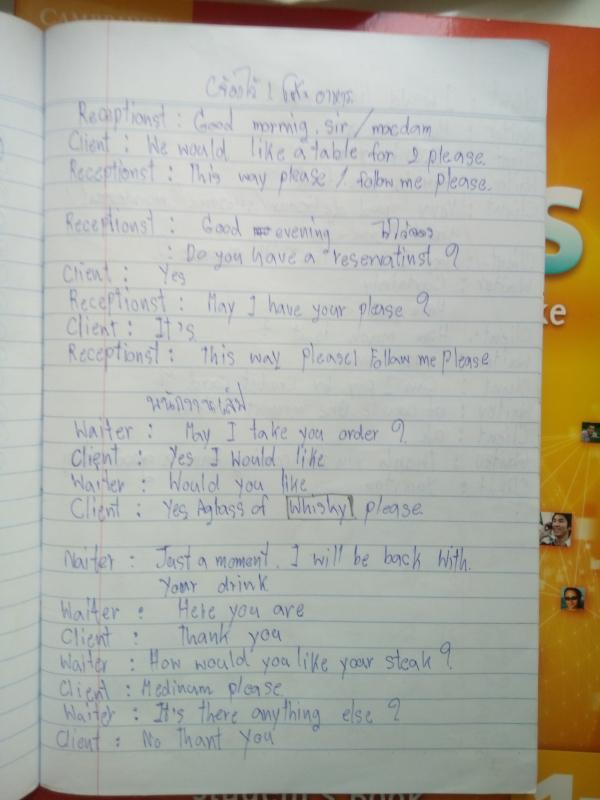 CAMBRIDGE
Receptionst : Good mormig, sir / macdam
Client : We would like a table for 2 please.
Receptionst : This way please / follow me please.
Receptionst : Good evening
: Do you have a reservatinst ?
Client : Yes
Receptionst : May I have your please ?
Client : It's
Receptionst : This way please / Follow me please
พนักงานเสิฟ
Waiter : May I take you order ?
Client : Yes I Would like
Waiter : Would you like
Client : Yes Aglass of Whisky please.
Naiter : Just a moment. I will be back with.
Your drink
Waiter : Here you are
Client : Thank you
Waiter : How would you like your steak ?
Client : Medinum please
Waiter : It's there anything else ?
Client : No Thant You
Student's Book